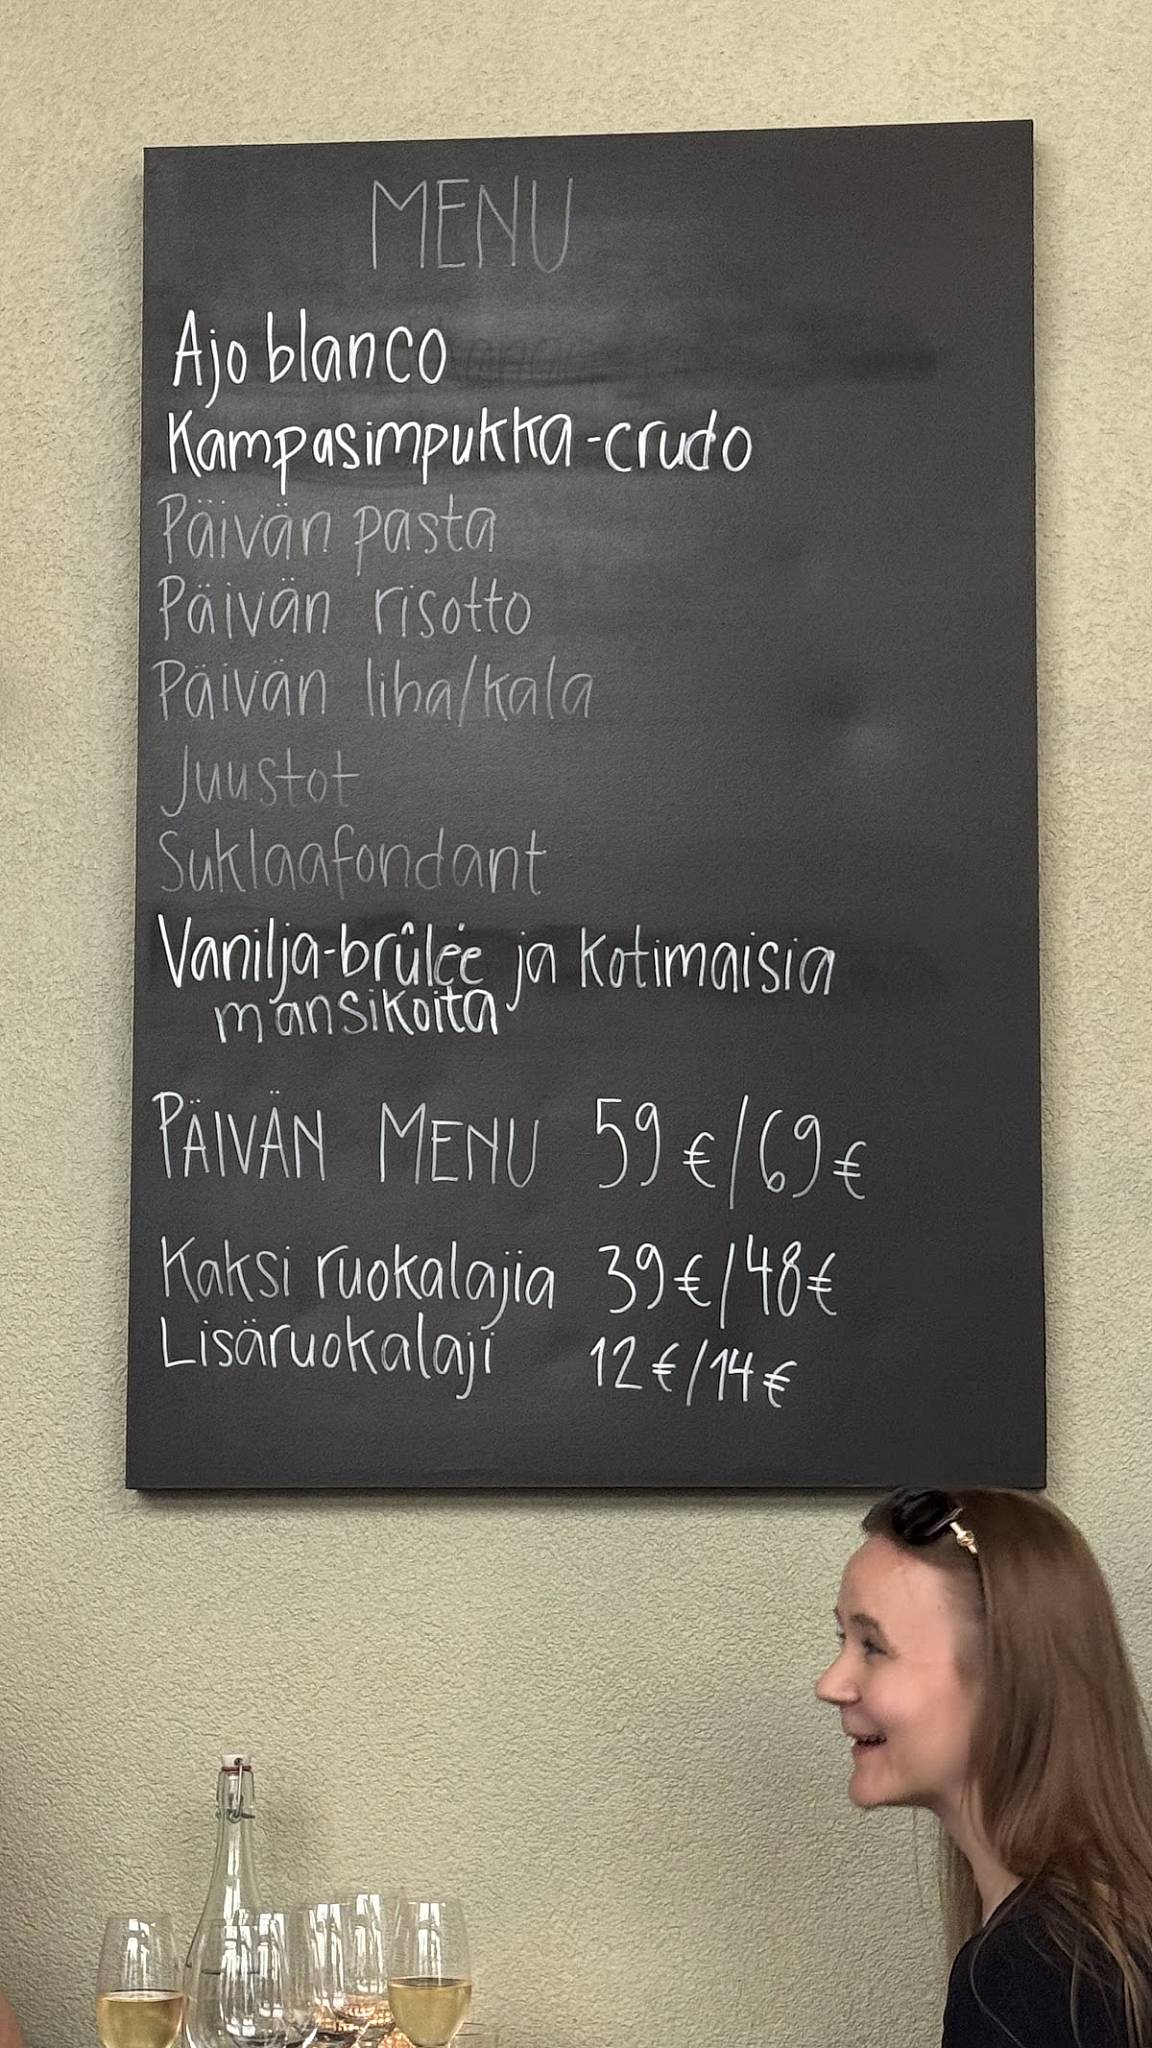 MENU
Ajo blanco
Kampasimpukka-crudo
Päivän pasta
Päivän risotto
Päivän liha/kala
Juustot
Suklaafondant
Vanilja-brûlée ja kotimaisia
mansikoita
PÄIVÄN MENU 59€/69€
Kaksi ruokalajia 39€/48€
Lisäruokalaji 12€/14€